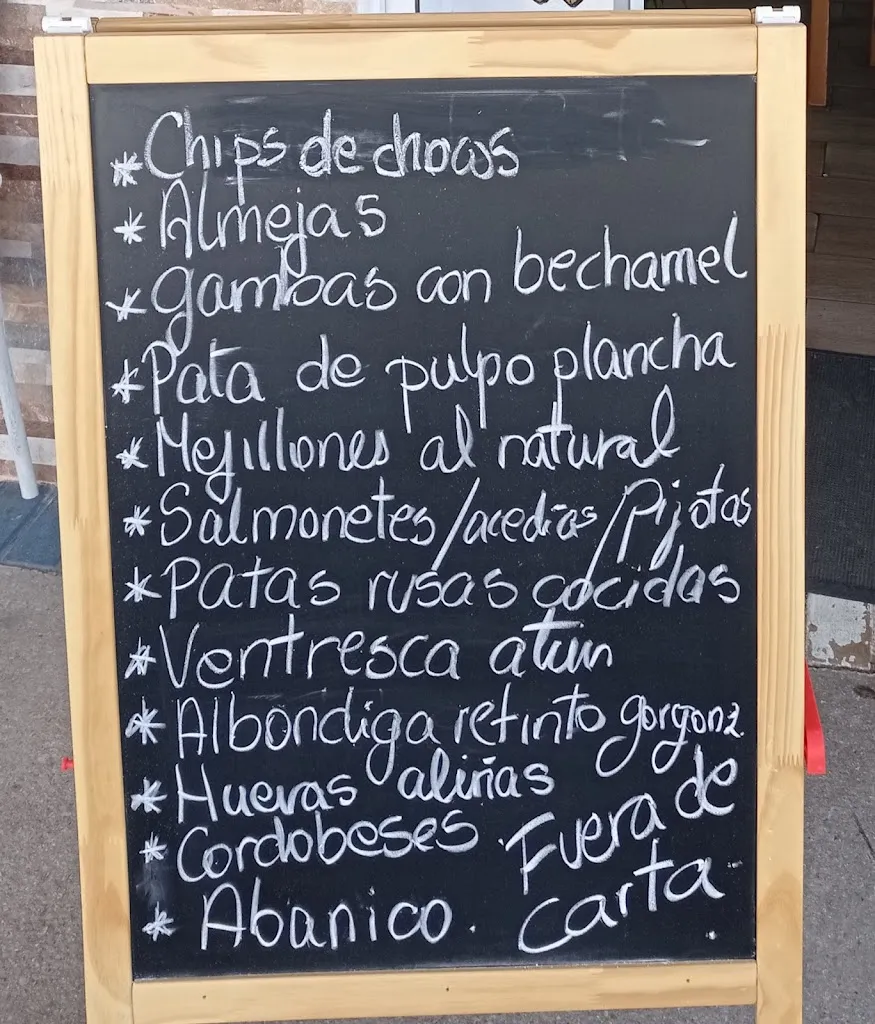 * Chips de chocos
* Almejas
* gambas con bechamel
* Pata de pulpo plancha
* Mejillones al natural
* Salmonetes/acedias/Pijotas
* Patas rusas cocidas
* Ventresca atun
* Albondiga retinto gorgonz.
* Huevas aliñas
* Cordobeses.
* Abanico.
Fuera de
carta.